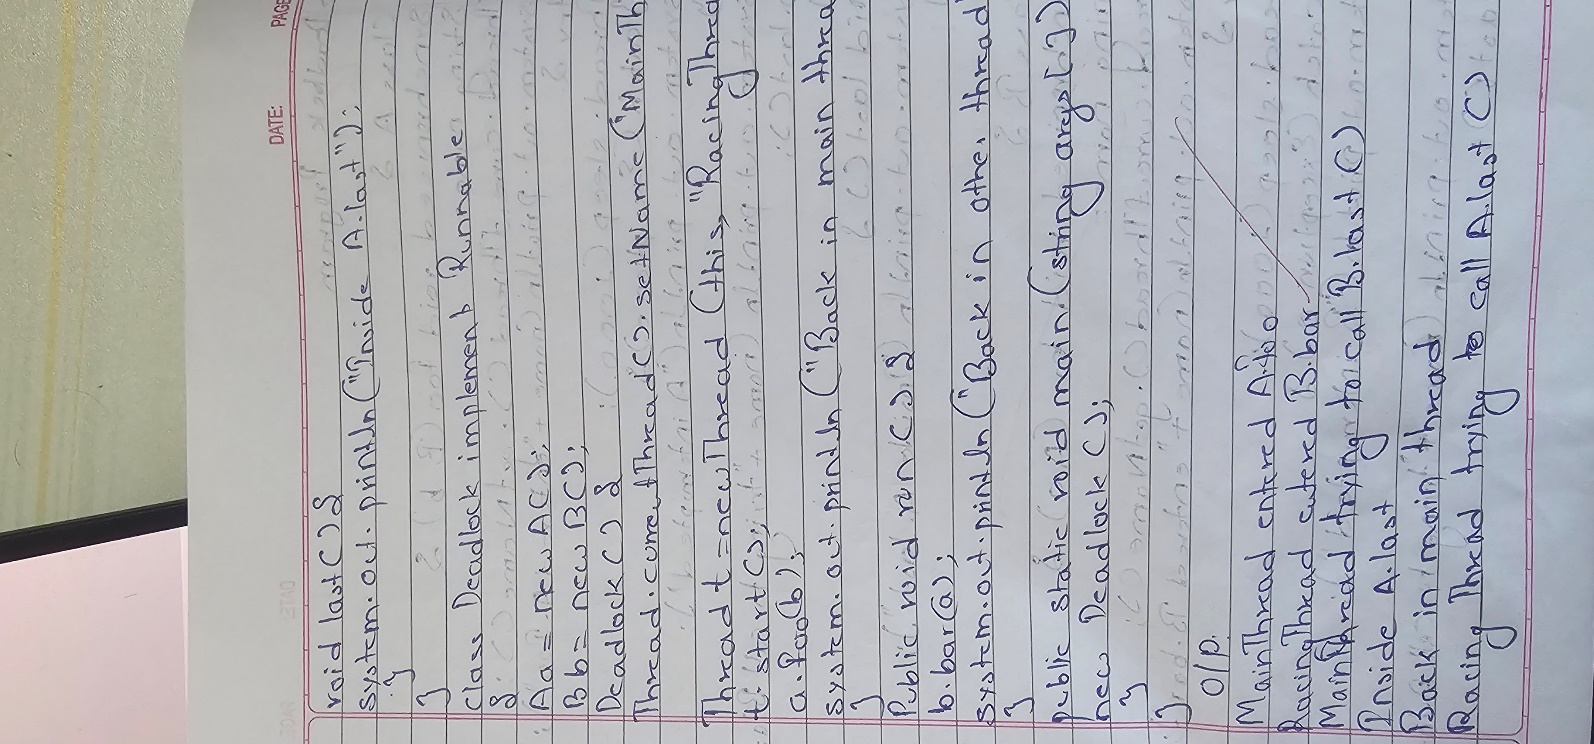 DATE:
PAGE
void last() {
System.out.println("Inside A.last");
}
}
class Deadlock implements Runnable
{
A a = new A();
B b = new B();
Deadlock() {
Thread.currentThread().setName("MainTh
Thread t = new Thread (this, "RacingThrea
t.start();
a.foo(b);
System.out.println("Back in main threa
}
Public void run() {
b.bar(a);
System.out.println("Back in other thread
}
public static void main (string args[])
new Deadlock ();
}
}
O/P.
MainThread entered A.foo
RacingThread entered B.bar
MainThread trying to call B.last()
Inside A.last
Back in main thread
Racing Thread trying to call A.last()